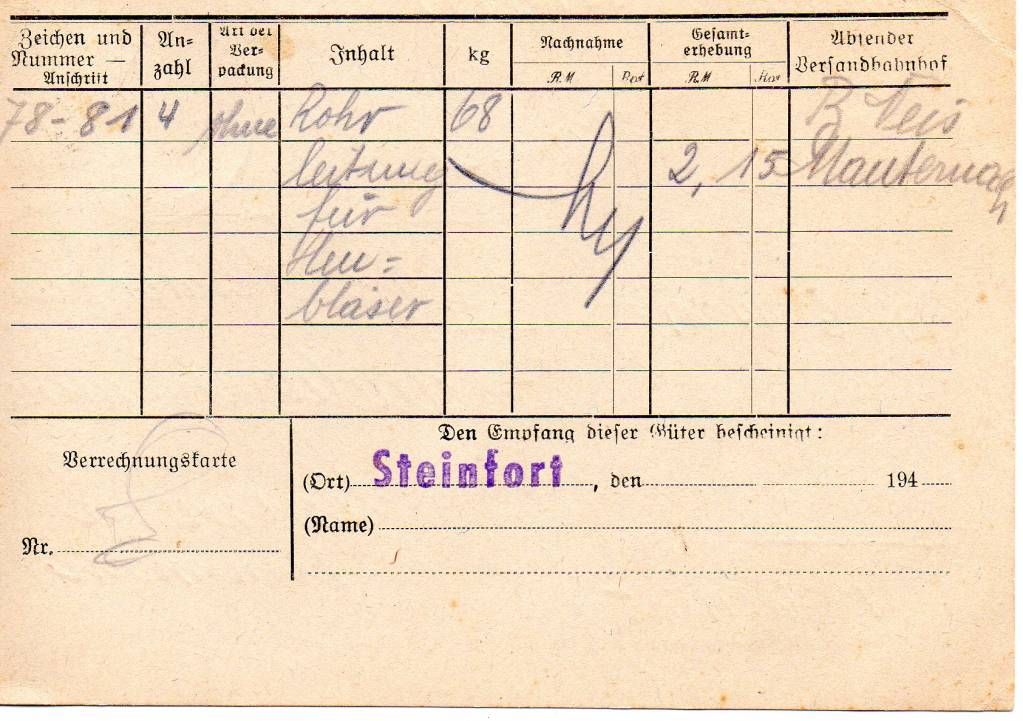 Zeichen und Nummer — Anschrift
An-zahl
Art der Ver-packung
Inhalt
kg
Nachnahme
RM
Gesamt-erhebung
RM
Absender
Versandbahnhof
78-81 4 ohne Rohr 68
leitung 2,15
für
Heu=
bläser
Verrechnungskarte
Nr.
Den Empfang dieser Güter bescheinigt:
(Ort) Steinfort, den 194
(Name)